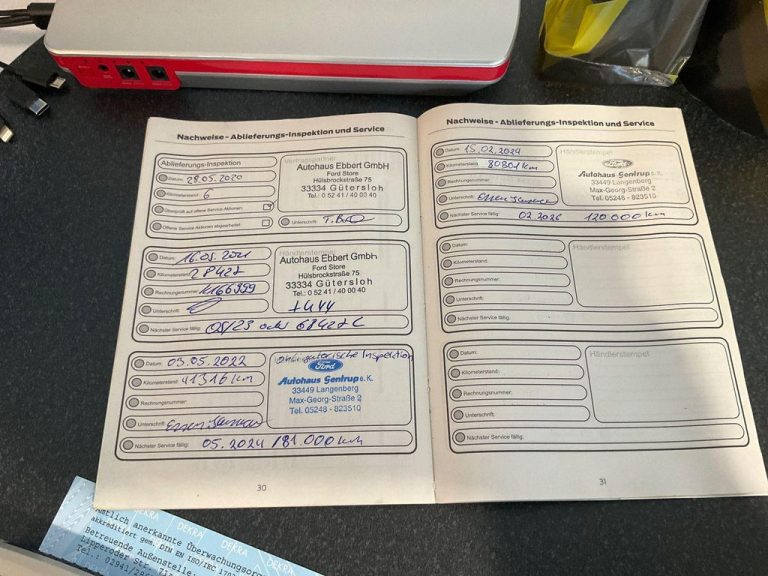 Nachweise - Ablieferungs-Inspektion und Service
Ablieferungs-Inspektion
Datum: 28.05.2020
Kilometerstand: 6
Überprüft auf offene Service Aktionen:
Offene Service Aktionen abgearbeitet:
Vertragspartner
Autohaus Ebbert GmbH
Ford Store
Hülsbrockstraße 75
33334 Gütersloh
Tel.: 0 52 41 / 40 00 40
Unterschrift:
Datum: 16.05.2021
Kilometerstand: 28427
Rechnungsnummer: 1166999
Unterschrift:
Nächster Service fällig: 05/23 oder 68427
Händlerstempel
Autohaus Ebbert GmbH
Ford Store
Hülsbrockstraße 75
33334 Gütersloh
Tel.: 0 52 41 / 40 00 40
Datum: 05.05.2022
Kilometerstand: 41316 km
Rechnungsnummer:
Unterschrift:
Nächster Service fällig: 05.2024 / 81.000 km
obligatorische Inspektion
Ford
Autohaus Sentrup e.K.
33449 Langenberg
Max-Georg-Straße 2
Tel. 05248 - 823510
30
Nachweise - Ablieferungs-Inspektion und Service
Datum: 15.02.2024
Kilometerstand: 80801 km
Rechnungsnummer:
Unterschrift:
Nächster Service fällig: 02.2026 120.000 km
Händlerstempel
Ford
Autohaus Sentrup e.K.
33449 Langenberg
Max-Georg-Straße 2
Tel. 05248 - 823510
Datum:
Kilometerstand:
Rechnungsnummer:
Unterschrift:
Nächster Service fällig:
Händlerstempel
Datum:
Kilometerstand:
Rechnungsnummer:
Unterschrift:
Nächster Service fällig:
Händlerstempel
31
DEKRA
DEKRA
DEKRA
Amtlich anerkannte Überwachungsorg
akkreditiert gem. DIN EN ISO/IEC 170
Betreuende Außenstelle:
Lipperoder Str.
Tel.: 02941/28